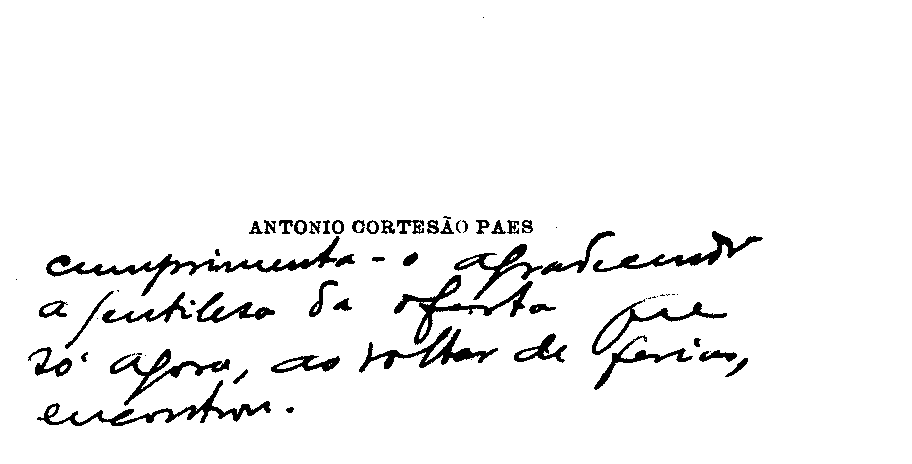 ANTONIO CORTESÃO PAES
cumprimenta-o agradecendo
a gentileza da oferta que
só agora, ao voltar de ferias,
encontrou.